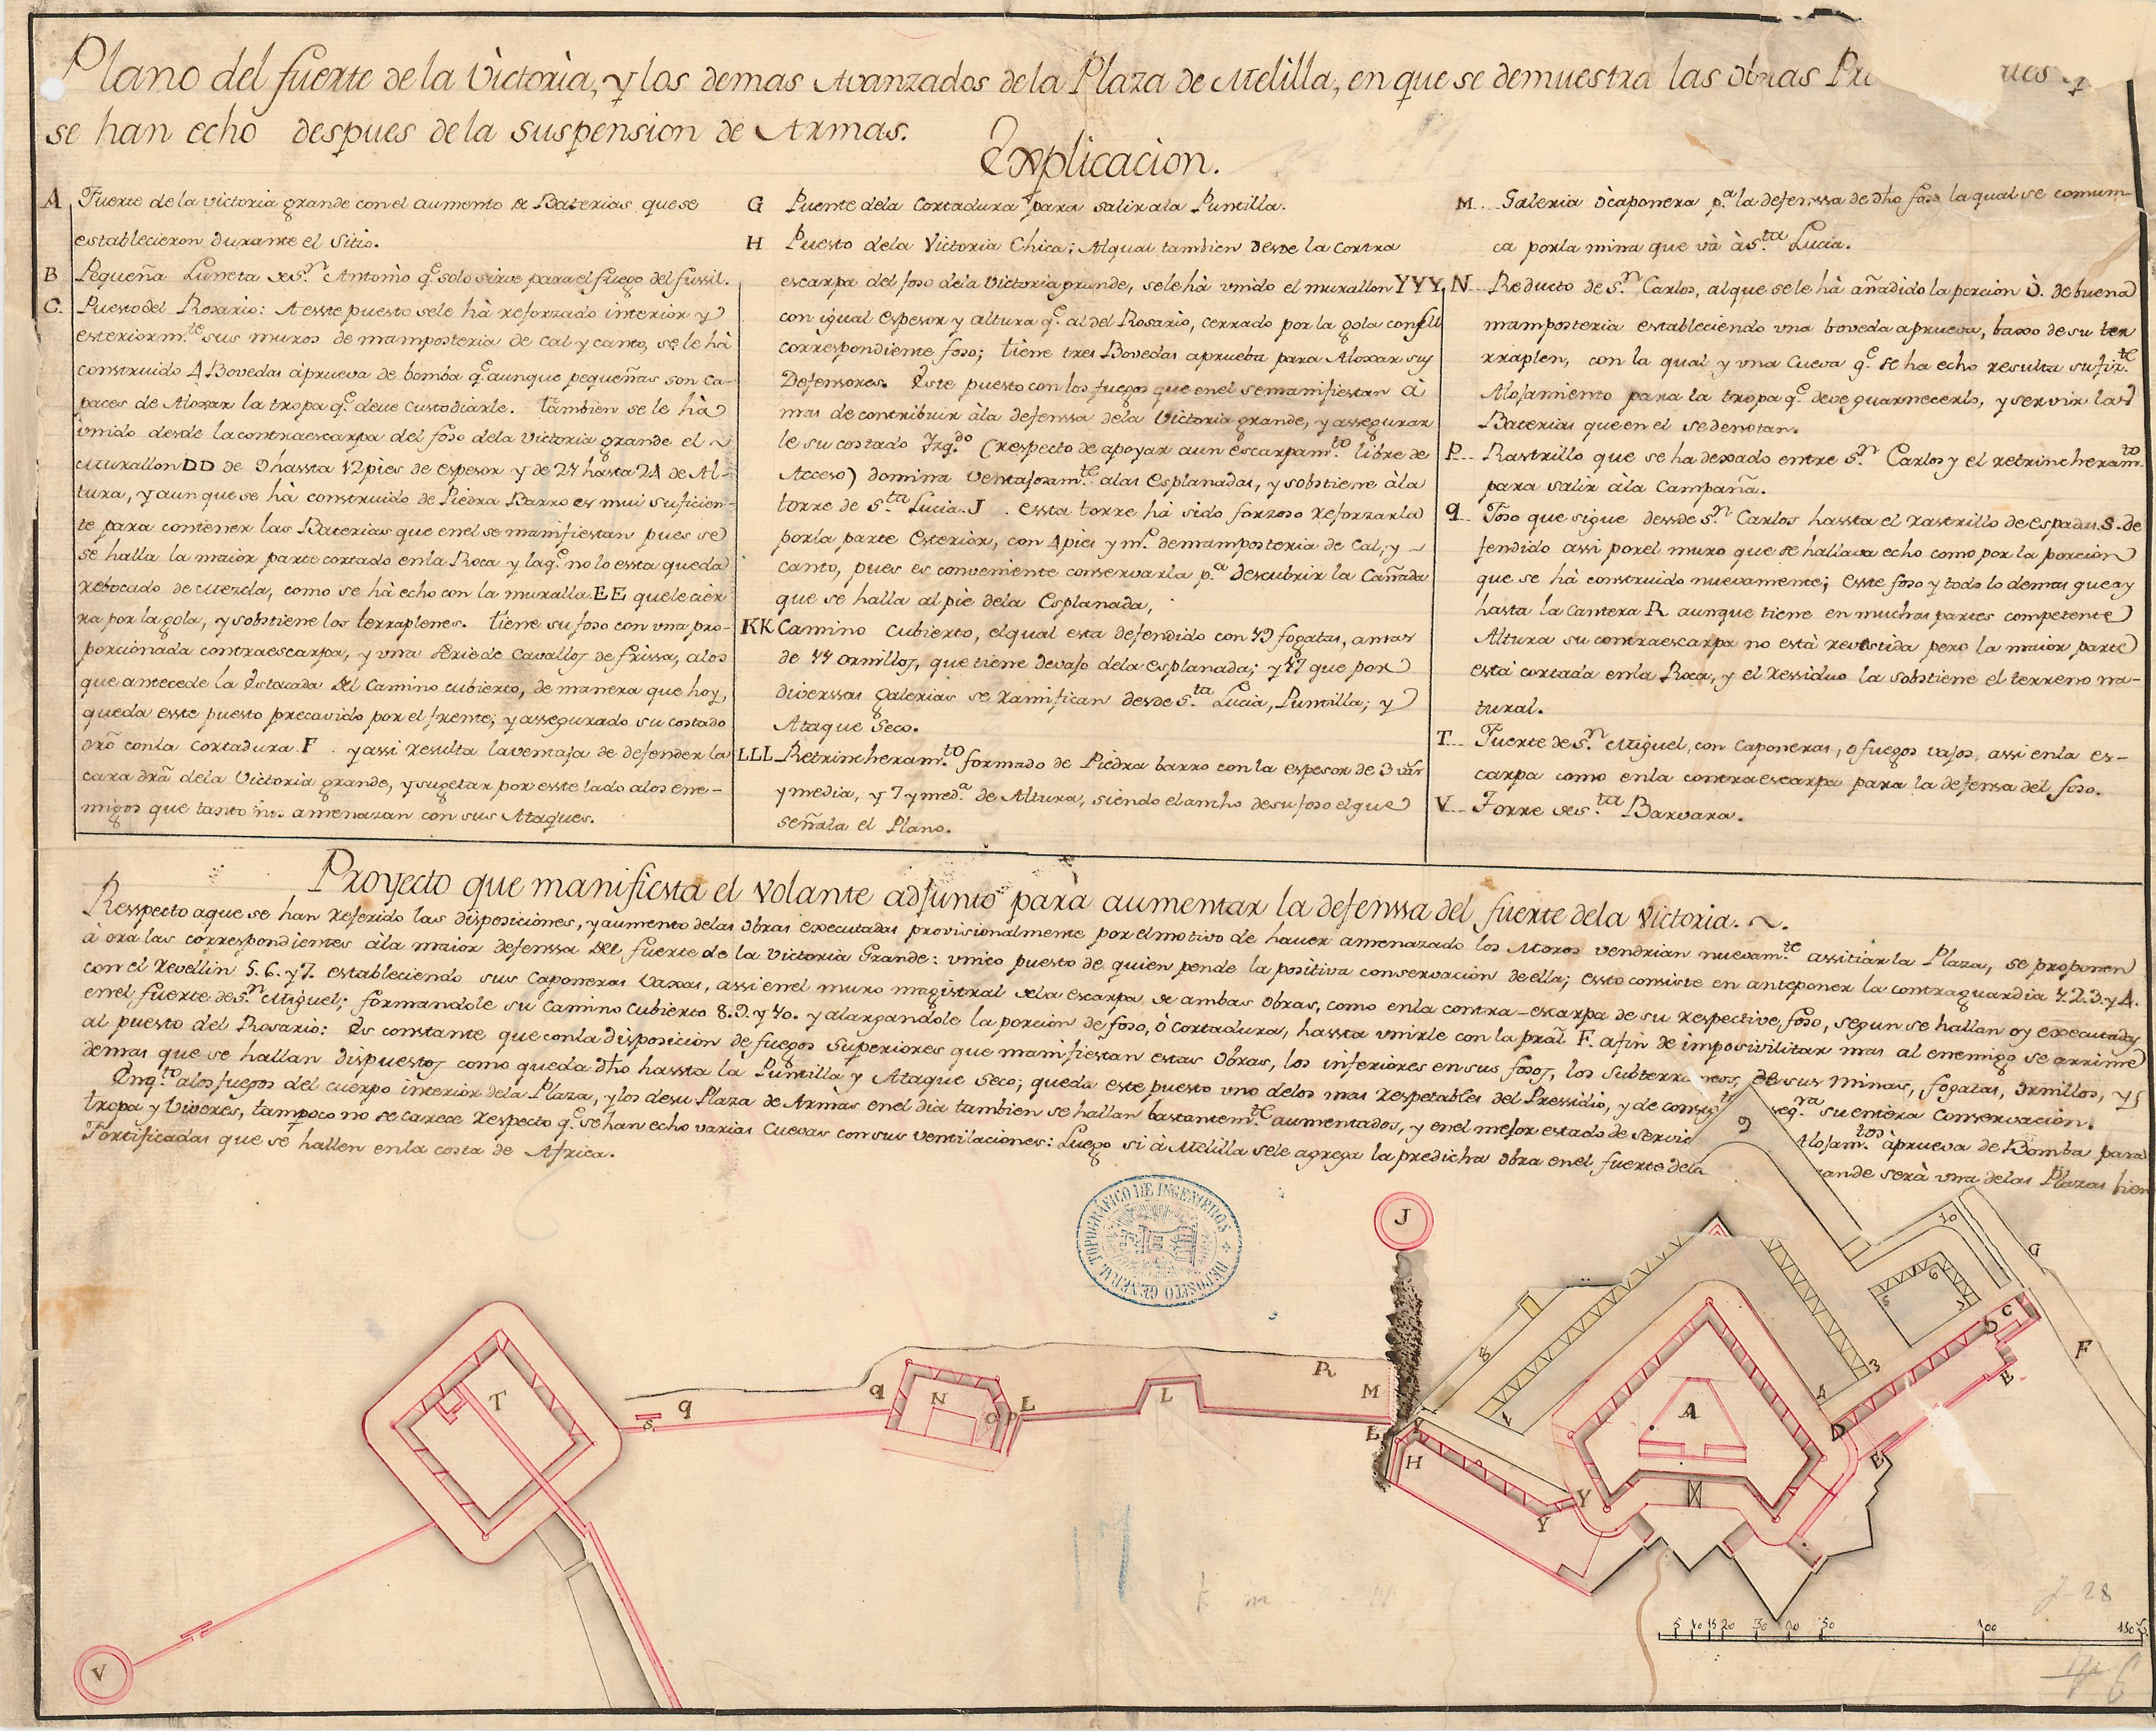 Plano del fuerte de la Victoria, y los demas Avanzados de la Plaza de Melilla, en que se demuestra las obras
se han echo despues de la suspension de Armas.
Explicacion.
A Fuerte de la victoria grande con el aumento de Baterias que se
establecieron durante el Sitio.
B Pequeña Luneta de Sn. Antonio qe. solo sirve para el fuego del fusil.
C. Puesto del Rosario: A esste puesto sele hà reforzado interior y
esteriormte. sus muros de mamposteria de cal y canto, se le hà
construido 4 Bovedas àprueva de bomba qe. aunque pequeñas son ca-
paces de Aloxar la tropa qe. deve custodiarle. tambien se le hà
vnido desde la contraescarpa del foso dela Victoria grande el
Murallon DD de 9 hassta 12 pies de espesor y de 21 hasta 24 de Al-
tura, y aun que se hà construido de Piedra Barro es mui suficien-
te para contener las Baterias que enel se manifiestan pues se
se halla la maior parte cortado enla Roca y laqe. no lo essta queda
rebocado de Mezcla, como se hà echo con la muralla. EE quele cier
ra por la gola, y sobstiene los terraplenes. tiene su foso con vna pro-
porcionada contraescarpa, y vna serie de Cavallos de frissa, alos
que antecede la Estacada del Camino cubierto, de manera que hoy,
queda esste puesto precavido por el frente; y assegurado su costado
dro. conla Cortadura. F. y assi resulta la ventaja de defender la
cara dra. dela Victoria grande, y sugetar por esste lado alos ene-
migos que tanto nos amenazan con sus Ataques.
G Puente dela Cortadura para salir ala Puntilla.
H Puesto dela Victoria Chica: Alqual tambien desde la contra
escarpa del foso dela Victoria grande, sele hà vnido el murallon YYY
con igual espesor y altura qe. al del Rosario, cerrado por la gola con su
correspondiente foso; tiene tres Bovedas aprueba para Aloxar sus
Defensores. Este puesto con los fuegos que enel se manifiestan à
mas de contribuir àla defenssa dela Victoria grande, y assegurar
le su costado Yzqdo. (respecto de apoyar aun escarpamto. libre de
Acceso) domina ventajosamte. alas Esplanadas, y sobstiene àla
torre de Sta. Lucia. J. essta torre hà sido forzoso reforzarla
porla parte Esterior, con 4 pies y mo. de mamposteria de Cal, y
canto, pues es conveniente conservarla pa. descubrir la Cañada
que se halla al piè dela Esplanada,
KK Camino Cubierto, elqual esta defendido con 19 fogatas, antas
de 11 ornillos, que tiene devajo dela esplanada; y 17 que por
diverssas Galerias se ramifican desde Sta. Lucia, Puntilla; y
Ataque Seco.
LLL Retrincheramto. formado de Piedra barro con la espesor de 3 vars
y media, y 7 y meda. de Altura, siendo el ancho desu foso el que
señala el Plano.
M.. Galeria òcaponera pa. la defenssa de dho foso la qual se comuni-
ca porla mina que và à Sta. Lucia.
N.. Reducto de Sn. Carlos, alque se le hà añadido la porcion O. de buena
mamposteria estableciendo vna boveda aprueva, baxo de su ter
rraplen, con la qual y vna Cueva qe. se ha echo resulta sufizte.
Alojamiento para la tropa qe. deve guarnecerlo, y servir las
Baterias que en el se denotan.
P.. Rastrillo que se ha dexado entre Sn. Carlos y el retrincheramto.
para salir àla Campaña.
q.. Foso que sigue dessde Sn. Carlos hassta el rastrillo de espadas. S. de
fendido assi porel muro que se hallava echo como por la porcion
que se hà construido nuevamente; esste foso y todo lo demas que ay
hasta la Cantera R aunque tiene en muchas partes competente
Altura su contraescarpa no està revestida pero la maior parte
està cortada enla Roca, y el ressiduo la sobstiene el terreno na-
tural.
T.. Fuerte de Sn. Miguel, con Caponeras, o fuegos vajos, assi enla es-
carpa como enla contraescarpa para la defensa del foso.
V.. Torre de Sta. Barvara.
Proyecto que manifiesta el Volante adjunto para aumentar la defenssa del fuerte dela Victoria.
Resspecto aque se han referido las disposiciones, y aumento delas obras executadas provisionalmente por el motivo de haver amenazado los Moros vendrian nuevamte. assitiar la Plaza, se proponen
à ora las correspondientes àla maior defenssa del fuerte de la Victoria Grande: vnico puesto de quien pende la positiva conservacion de ella; essto consiste en anteponer la contraguardia 1.2.3. y 4.
con el Revellin 5. 6. y 7. estableciendo sus Caponeras vaxas, assi en el muro magistral dela escarpa de ambas obras, como enla contra-escarpa de su respective foso, segun se hallan oy executadas
en el fuerte de Sn. Miguel; formandole su Camino Cubierto 8. 9. y 10. y alargandole la porcion de foso, ò cortadura, hassta vnirle con la pral. F. afin de imposivilitar mas al enemigo se arrime
al puesto del Rosario: Es constante que conla disposicion de fuegos superiores que manifiestan estas obras, los inferiores en sus fosos, los subterraneos, de sus minas, fogatas, ornillos, y
demas que se hallan dispuestos como queda dho hassta la Puntilla y Ataque Seco; queda este puesto vno delos mas respetables del Pressidio, y de su entera conservacion.
Enqto. alos fuegos del cuerpo interior dela Plaza, y los desu Plaza de Armàs enel dia tambien se hallan bastantemte. aumentados, y en el mejor estado de Alojamtos. àprueva de Bomba para
tropa y Viveres, tampoco no se carece respecto qe. se han echo varias Cuevas con sus ventilaciones: Luego si à Melilla sele agrega la predicha obra enel fuerte dela ande serà vna delas Plazas bien
Fortificadas que se hallen enla costa de Africa.
DEPOSITO GENERAL TOPOGRÁFICO DE INGENIEROS
J
9
10
G
6
5
7
C
D
8
F
T
q
R
3
E
q
N
L
L
M
1
A
4
S
O
P
L
Y
D
H
E
Y
Y
V
17
J 28
5 10 15 20 30 40 50 100 150
6